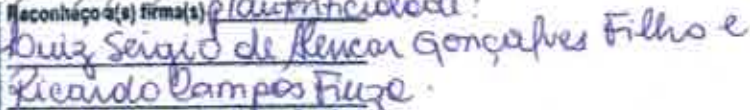 Reconheço a(s) firma(s) p/autenticidade:
Luiz Sergio de Alencar Gonçalves Filho e
Ricardo Campos Fiuza.